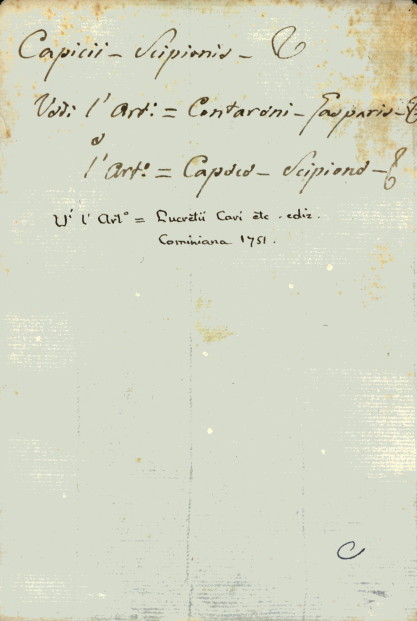 Capicii - Scipionis -
Vedi l'Art: = Contareni - Gasparis -
e
l'Art.o = Capece - Scipione -
V.i l'Art.o = Lucretii Cari etc. ediz.
Cominiana 1751.
C